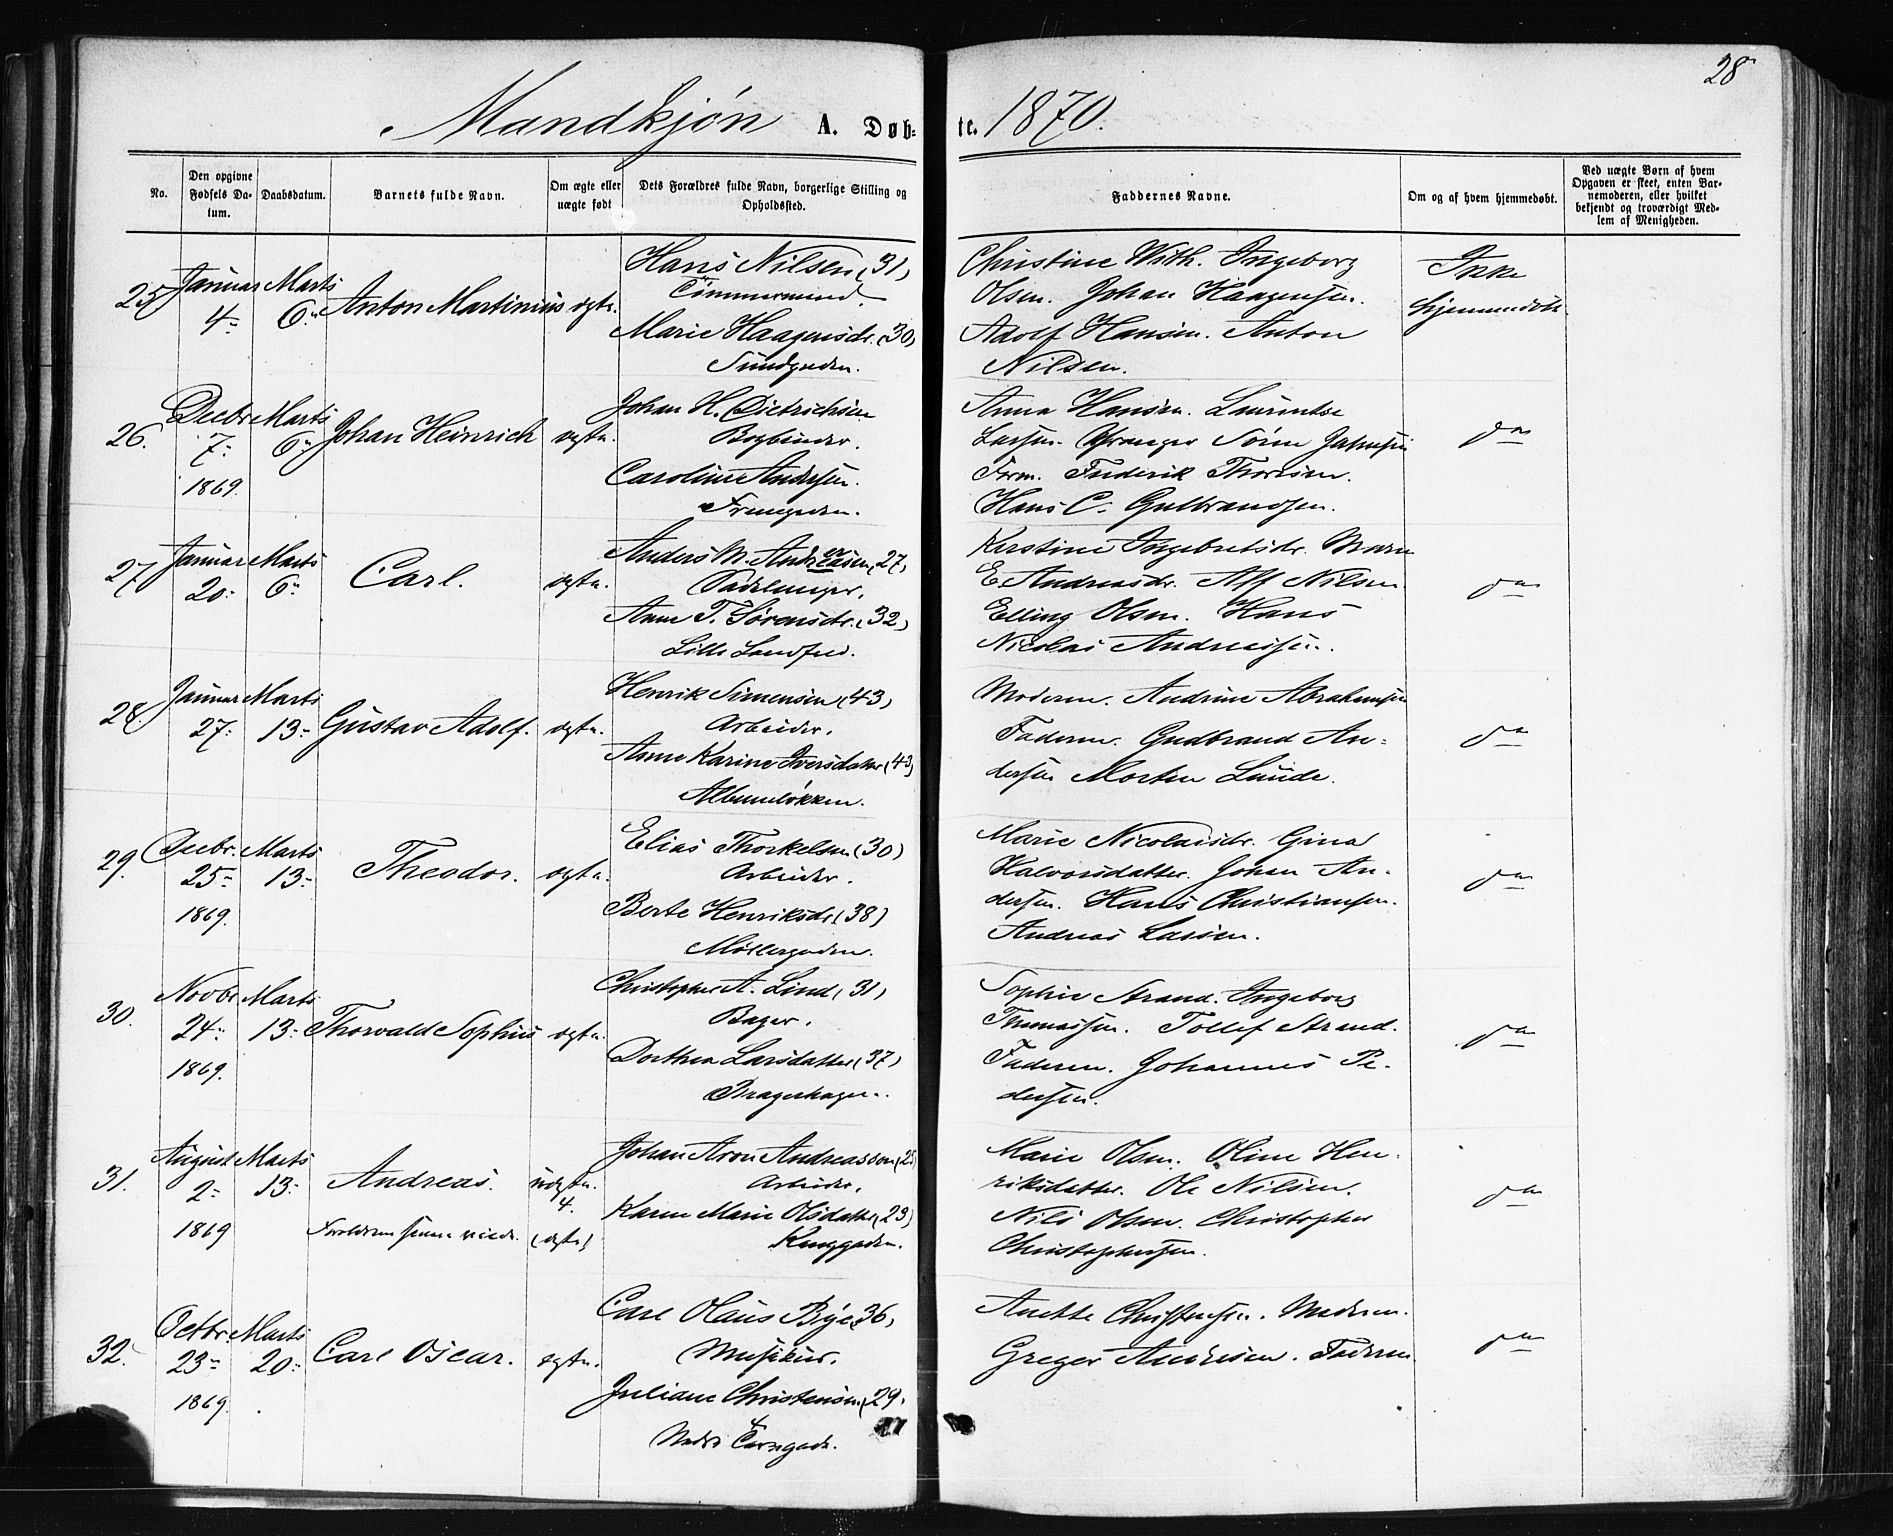 28
Mandkjøn A. Døb- te. 1870.
No.
Den opgivne Fødsels Da- tum.
Daabsdatum.
Barnets fulde Navn.
Om ægte eller uægte født
Dets Forældres fulde Navn, borgerlige Stilling og Opholdssted.
Faddernes Navne.
Om og af hvem hjemmedøbt.
Ved uægte Børn af hvem Opgaven er skeet, enten Bar- nemoderen, eller hvilket bekjendt og troværdigt Med- lem af Menigheden.
25
Januar 4
Marts 6
Anton Martinius
ægte.
Hans Nilsen (31)
Tømmermand.
Marie Haagensdr. (30)
Sundgaden.
Christine With. Ingeborg
Olsen. Johan Haagensen.
Adolf Hansen. Anton
Nilsen.
Ikke
hjemmedøbt
26.
Decbr 7 1869.
Marts 6
Johan Heinrich
ægte.
Johan H. Dietrichsen
Bogbinder.
Caroline Andersen.
Anna Hansen. Laurentse
Larsen. Søren
Frederik Thoresen.
Hans C. Gulbrandsen.
do
27
Januar 20
Marts 6
Carl.
ægte.
Anders M. Andreasen (27)
Anne T. Sørensdr. (32)
Lille Landfald.
Kirstine Ingebretsdr. Maren
E. Andreasdr. Alf Nilsen
Elling Olsen. Hans
Nicolai Andreassen.
do
28.
Januar 27
Marts 13
Gustav Adolf.
ægte.
Henrik Simensen (43)
Arbeider.
Anne Karine Iversdatter (43)
Albumløkken.
Moderen. Andrine Abrahamsen
Faderen. Gudbrand An-
dersen Morten Lunde.
do
29.
Decbr. 25 1869.
Marts 13
Theodor.
ægte.
Elias Thorkelsen (30)
Arbeider.
Berte Henriksdr (38)
Møllergaden.
Marie Nicolaisdr. Gina
Halvorsdatter. Johan An-
dersen. Hans Christiansen.
Andreas Larsen.
do
30.
Novbr 24 1869.
Marts 13
Thorvald Sophus
ægte.
Christopher A. Lind (31)
Bager.
Dorthea Larsdatter (37)
Sophie Strand. Ingeborg
Thomassen. Tollef Strand.
Faderen. Johannes Pe-
dersen.
do
31.
August 2 1869
Marts 13
Andreas.
Forældrene senere viede.
uægte.
4.
(ægte)
Johan Aron Andreasson
Arbeider.
Karen Marie Olsdatter (23)
Marie Olsen. Oline Hen-
riksdatter. Ole Nilsen.
Nils Olsen. Christopher
Christophersen.
do
32.
Octbr. 23 1869.
Marts 20
Carl Oscar.
ægte.
Carl Olaus Bye (36)
Musikus.
Juliane Christensen (29)
Nedre
Anette Christensen. Moderen.
Greger Andersen. Faderen
do